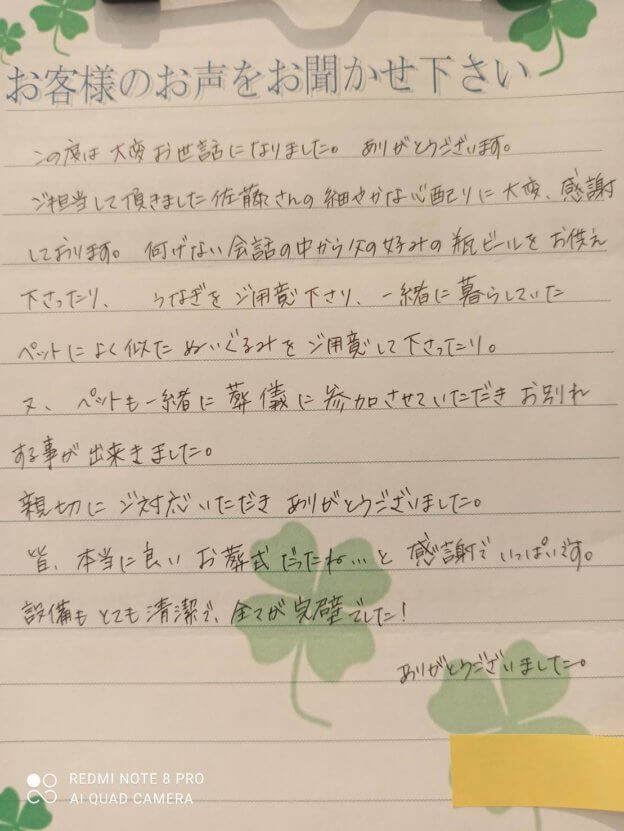 お客様のお声をお聞かせ下さい
この度は大変お世話になりました。ありがとうございます。
ご担当して頂きました佐藤さんの細やかな心配りに大変、感謝
しております。何げない会話の中から父の好みの瓶ビールをお供え
下さったり、うなぎをご用意下さり、一緒に暮らしていた
ペットによく似たぬいぐるみをご用意して下さったり。
又、ペットも一緒に葬儀に参加させていただきお別れ
する事が出来きました。
親切にご対応いただきありがとうございました。
皆、本当に良いお葬式だったね…と感謝でいっぱいです。
設備もとても清潔で、全てが完璧でした!
ありがとうございました。
REDMI NOTE 8 PRO
AI QUAD CAMERA